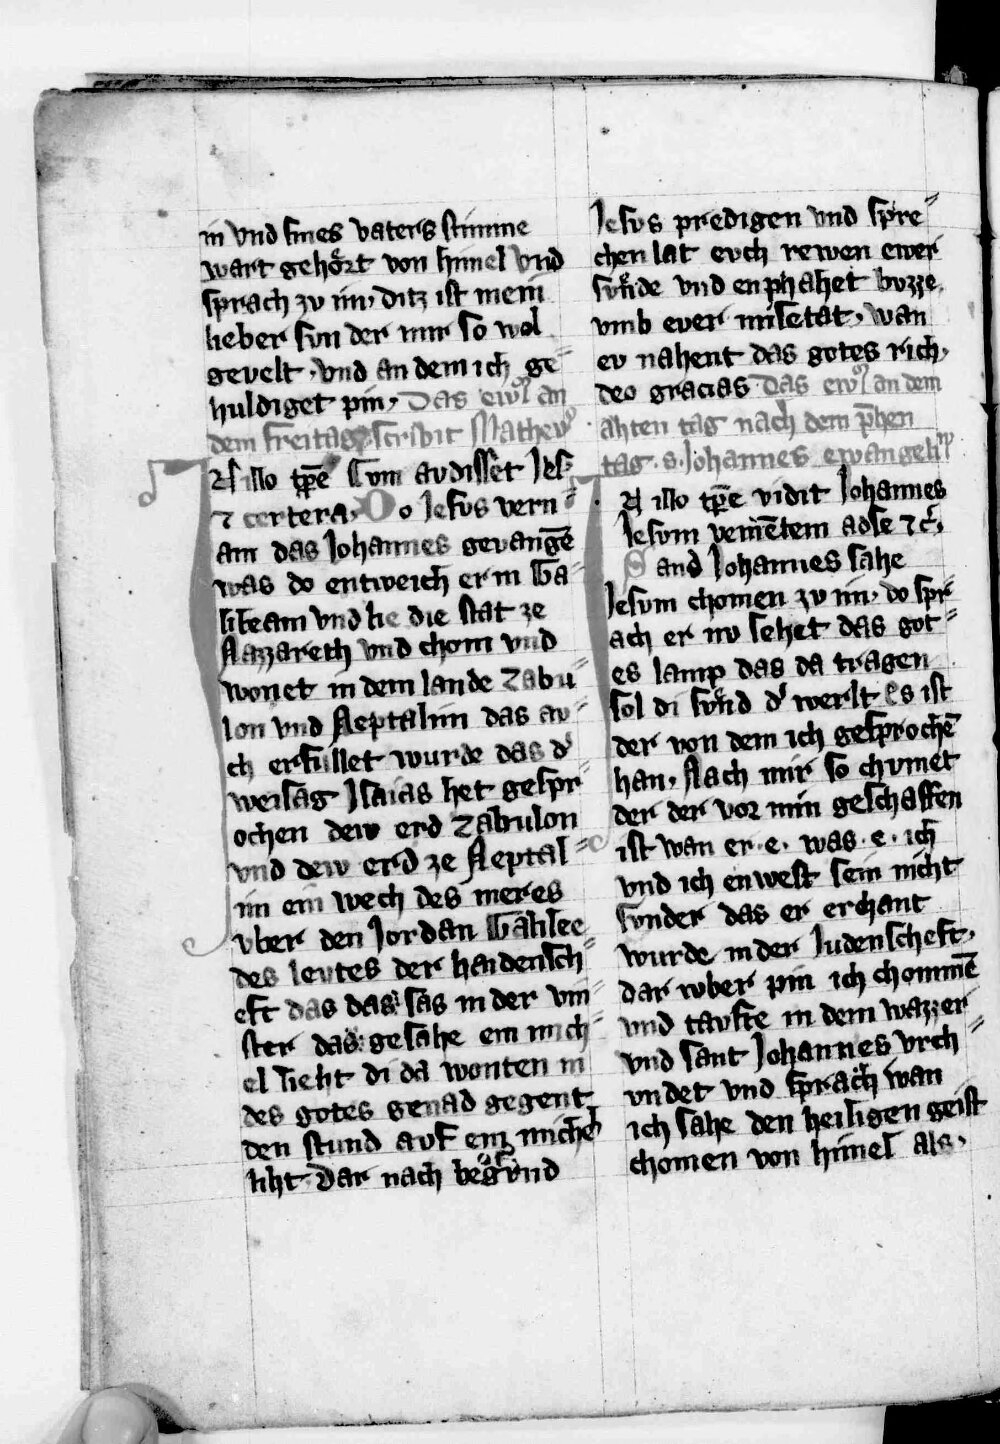 in vnd sines vaters stimme
wart gehört von himel vnd
sprach zv im, ditz ist mein
lieber svn der mir so wol
gevelt, vnd an dem ich ge⸗
huldiget pin, Das ew̄l an
dem freitag scribit Mathevs
N illo tp̄e Cvm avdisset Jes
⁊ certera, Do Jesvs vern⸗
am das Johannes gevangē
was do entweich er in Ga⸗
lileam vnd lie die stat ze
Nazzareth vnd chom vnd
wonet in dem lande Zabu⸗
lon vnd Neptalim das av⸗
ch erfullet wurde das d'
weisag Isaias het gespr⸗
ochen dew erd Zabulon
vnd dew erd ze Neptal⸗
im ein wech des meres
vber den Jordan Galilee
des levtes der haidensch⸗
eft das das sas in der vin⸗
ster das gesahe ein mich⸗
el lieht di da wonten in
des gotes genad gegent
den stund avf ein michel
liht Dar nach begvnd
Jesvs predigen vnd spre⸗
chen lat evch rewen ewer
svnde vnd enphahet bvzze,
vmb ever misetat, wan
ev nahent das gotes rich,
deo gracias Das ew̄l an dem
ahten tag nach dem p̄hen
tag .s. Johannes ewangeli
N illo tp̄e vidit Johannes
Jesvm veniētem ad se ⁊ c̄,
Sand Johannes sahe
Jesvm chomen zv im, do spr⸗
ach er nv sehet das got⸗
es lamp das da tragen
sol di svnd d' werlt es ist
der von dem ich gesprochē
han, Nach mir so chvmet
der der vor min geschaffen
ist wan er .e. was .e. ich
vnd ich enwest sein nicht
svnder das er erchant
wurde in der Judenscheft,
dar wber pin ich chommē
vnd tavfte in dem wazzer
vnd sant Johannes vrch⸗
vndet vnd sprach wan
ich sahe den heiligen geist
chomen von himel als,